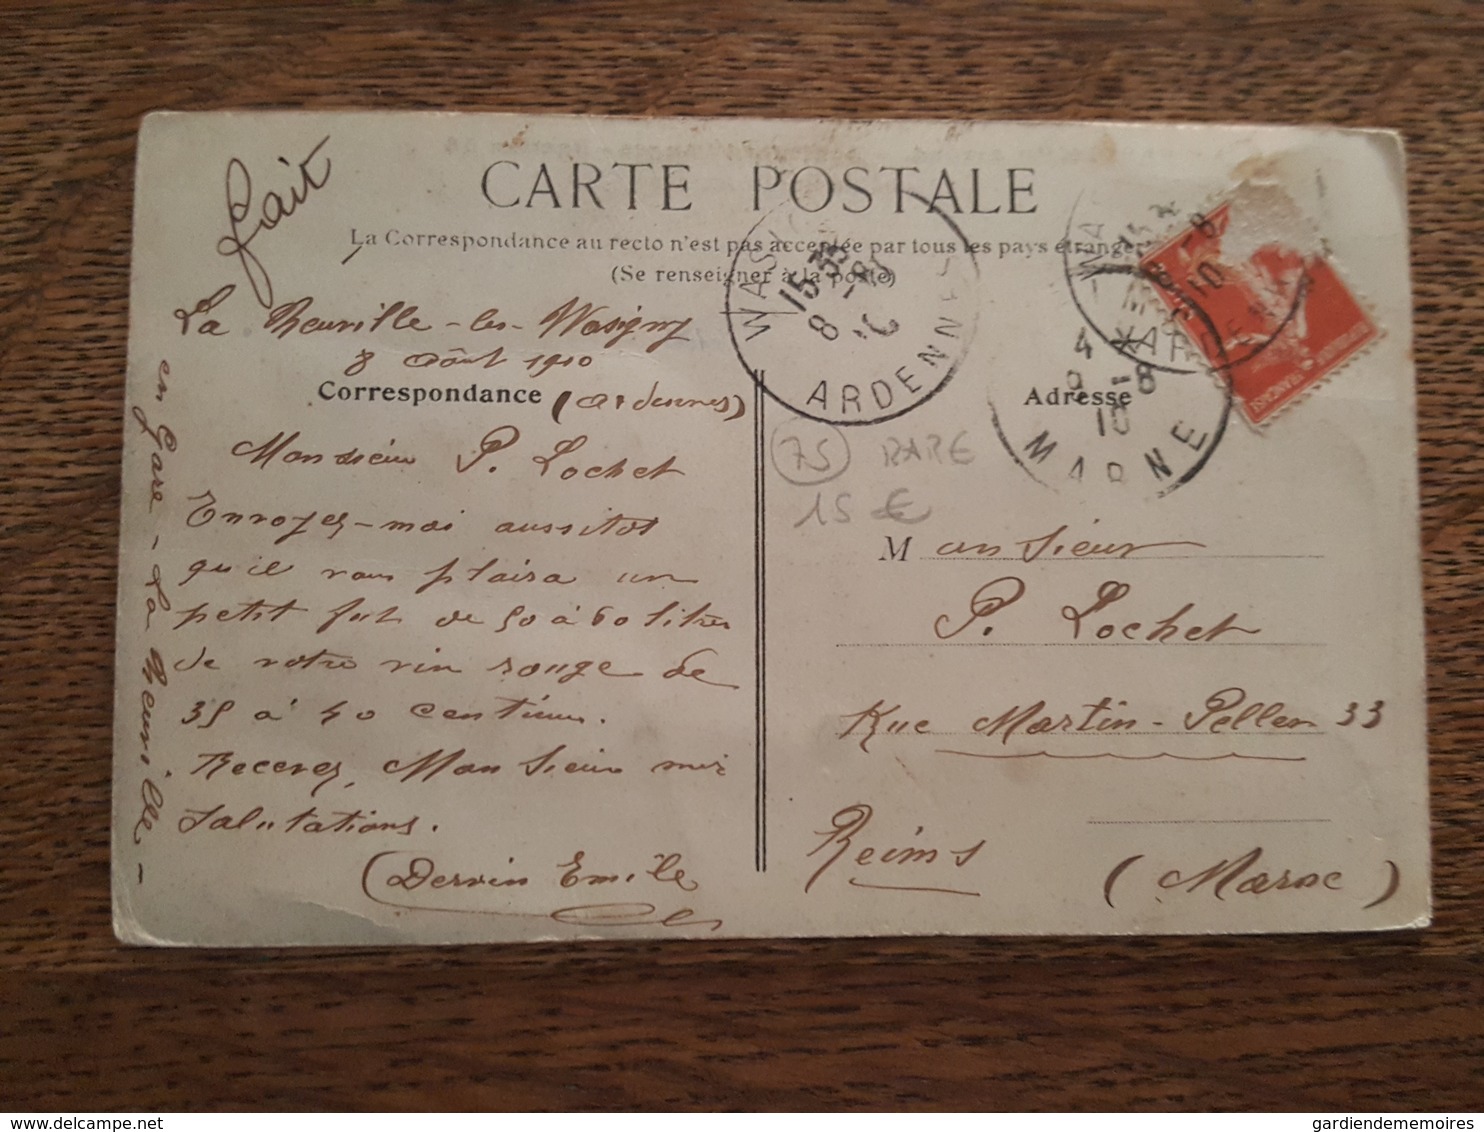 fait
CARTE POSTALE
La Correspondance au recto n'est pas acceptée par tous les pays étrangers
(Se renseigner à la poste)
La Neuville-les-Wasigny
8 Août 1910
Correspondance (Ardennes)
Monsieur P. Lochet
Envoyez-moi aussitot
qu'il vous plaira un
petit fut de 50 à 60 litres
de votre vin rouge de
35 à 40 centimes.
Recevez, Monsieur mes
salutations.
(Dervin Emile
en Gare - La Neuville -
WASIGNY
15 35
8 -8
10
ARDENNES
Adresse
4
9 -8
10
MARNE
75 RARE
15 €
Monsieur
P. Lochet
Rue Martin-Peller 33
Reims
(Marne)
delcampe.net
gardiendememoires